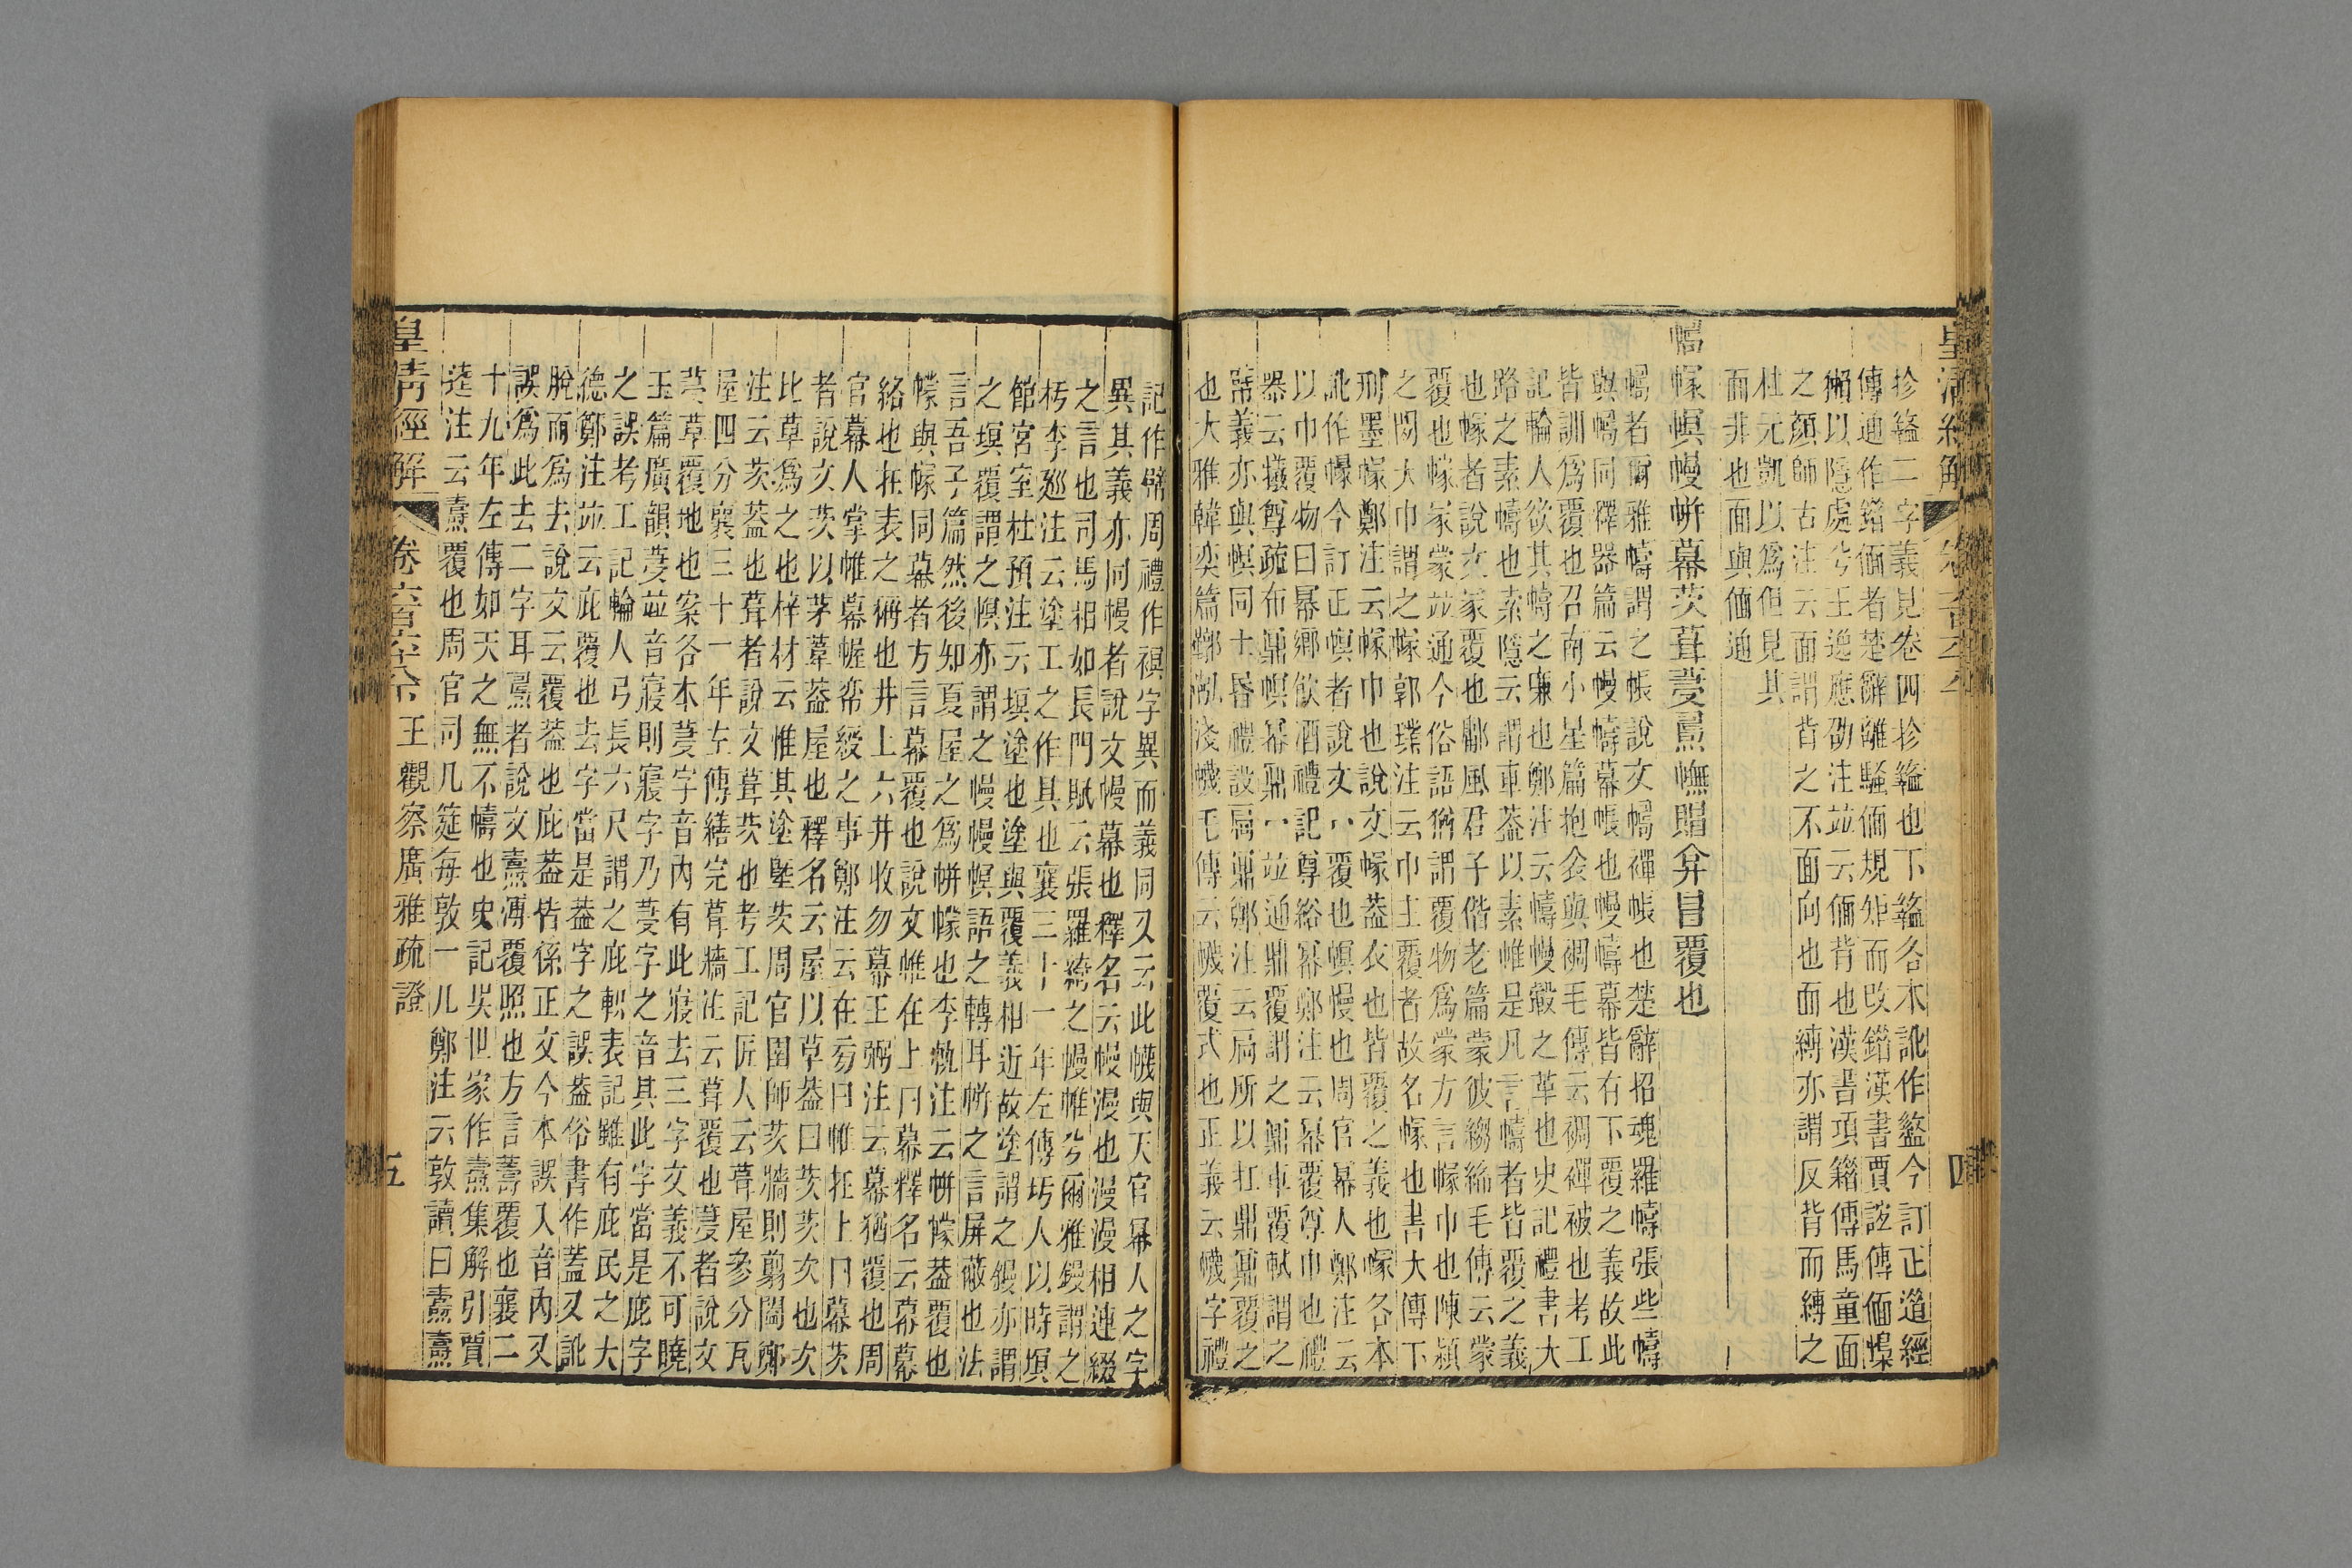 皇清經解
四
抮䋎二字義見卷四抮䋎也下䋎各本訛作盭今訂正道經
傳通作錯偭者楚辭離騷偭規矩而改錯漢書賈誼傳偭蟂
獺以隱處兮王逸應劭注竝云偭背也漢書項籍傳馬童面
之顔師古注云面謂背之不面向也面縛亦謂反背而縛之
杜元凱以爲但見其
而非也面與偭通
幬幏幎幔帡幕茨葺蔓燾幠賵弇冒覆也
幬者爾雅幬謂之帳說文幬襌帳也楚辭招魂羅幬張些幬
與幬同釋器篇云幔幬幕帳也幔幬幕皆有下覆之義故此
皆訓爲覆也召南小星篇抱衾與裯毛傳云裯襌被也考工
記輪人欲其幬之廉也鄭注云幬幔轂之革也史記禮書大
路之素幬也索隱云謂車蓋以素帷是凡言幬者皆覆之義
也幏者說文冡覆也鄘風君子偕老篇蒙彼縐絺毛傳云蒙
覆也幏冡蒙竝通今俗語猶謂覆物爲蒙方言幏巾也陳潁
之閒大巾謂之幏郭璞注云巾主覆者故名幏也書大傳下
刑墨幏鄭注云幏巾也說文幏蓋衣也皆覆之義也幏各本
訛作幪今訂正幎者說文冖覆也幎幔也周官冪人鄭注云
以巾覆物曰冪鄉飲酒禮記尊綌冪鄭注云冪覆尊巾也禮
器云犧尊疏布鼏幎冪鼏冖竝通鼎覆謂之鼏車覆軾謂之
幦義亦與幎同士昏禮設扃鼏鄭注云扃所以扛鼎鼏覆之
也大雅韓奕篇鞹鞃淺幭毛傳云幭覆式也正義云幭字禮
記作幦周禮作䙏字異而義同又云此幭與天官冪人之字
異其義亦同幔者說文幔幕也釋名云幔漫也漫漫相連綴
之言也司馬相如長門賦云張羅綺之幔帷兮爾雅鏝謂之
杇李巡注云塗工之作具也襄三十一年左傳圬人以時塓
館宮室杜預注云塓塗也塗與覆義相近故塗謂之鏝亦謂
之塓覆謂之幎亦謂之幔幔幎語之轉耳帡之言屏蔽也法
言吾子篇然後知夏屋之爲帡幪也李軌注云帡幪蓋覆也
幪與幏同幕者方言幕覆也說文帷在上曰幕釋名云幕幕
絡也在表之稱也井上六井收勿幕王弼注云幕猶覆也周
官幕人掌帷幕幄帟綬之事鄭注云在旁曰帷在上曰幕茨
者說文茨以茅葦蓋屋也釋名云屋以草蓋曰茨茨次也次
比草爲之也梓材云惟其塗墍茨周官圉師茨牆則翦闔鄭
注云茨蓋也葺者說文葺茨也考工記匠人云葺屋參分瓦
屋四分襄三十一年左傳繕完葺牆注云葺覆也蔓者說文
蔓草覆地也案各本蔓字音內有此寖去三字文義不可曉
玉篇廣韻蔓竝音寖則寖字乃蔓字之音其此字當是庇字
之誤考工記輪人弓長六尺謂之庇軹表記雖有庇民之大
德鄭注竝云庇覆也去字當是蓋字之誤蓋俗書作葢又訛
脫而爲去說文云覆葢也庇蓋皆係正文今本誤入音內又
誤爲此去二字耳燾者說文燾溥覆照也方言燾覆也襄二
十九年左傳如天之無不幬也史記吳世家作燾集解引賈
逵注云燾覆也周官司几筵每敦一几鄭注云敦讀曰燾燾
皇清經解
王觀察廣雅疏證
五